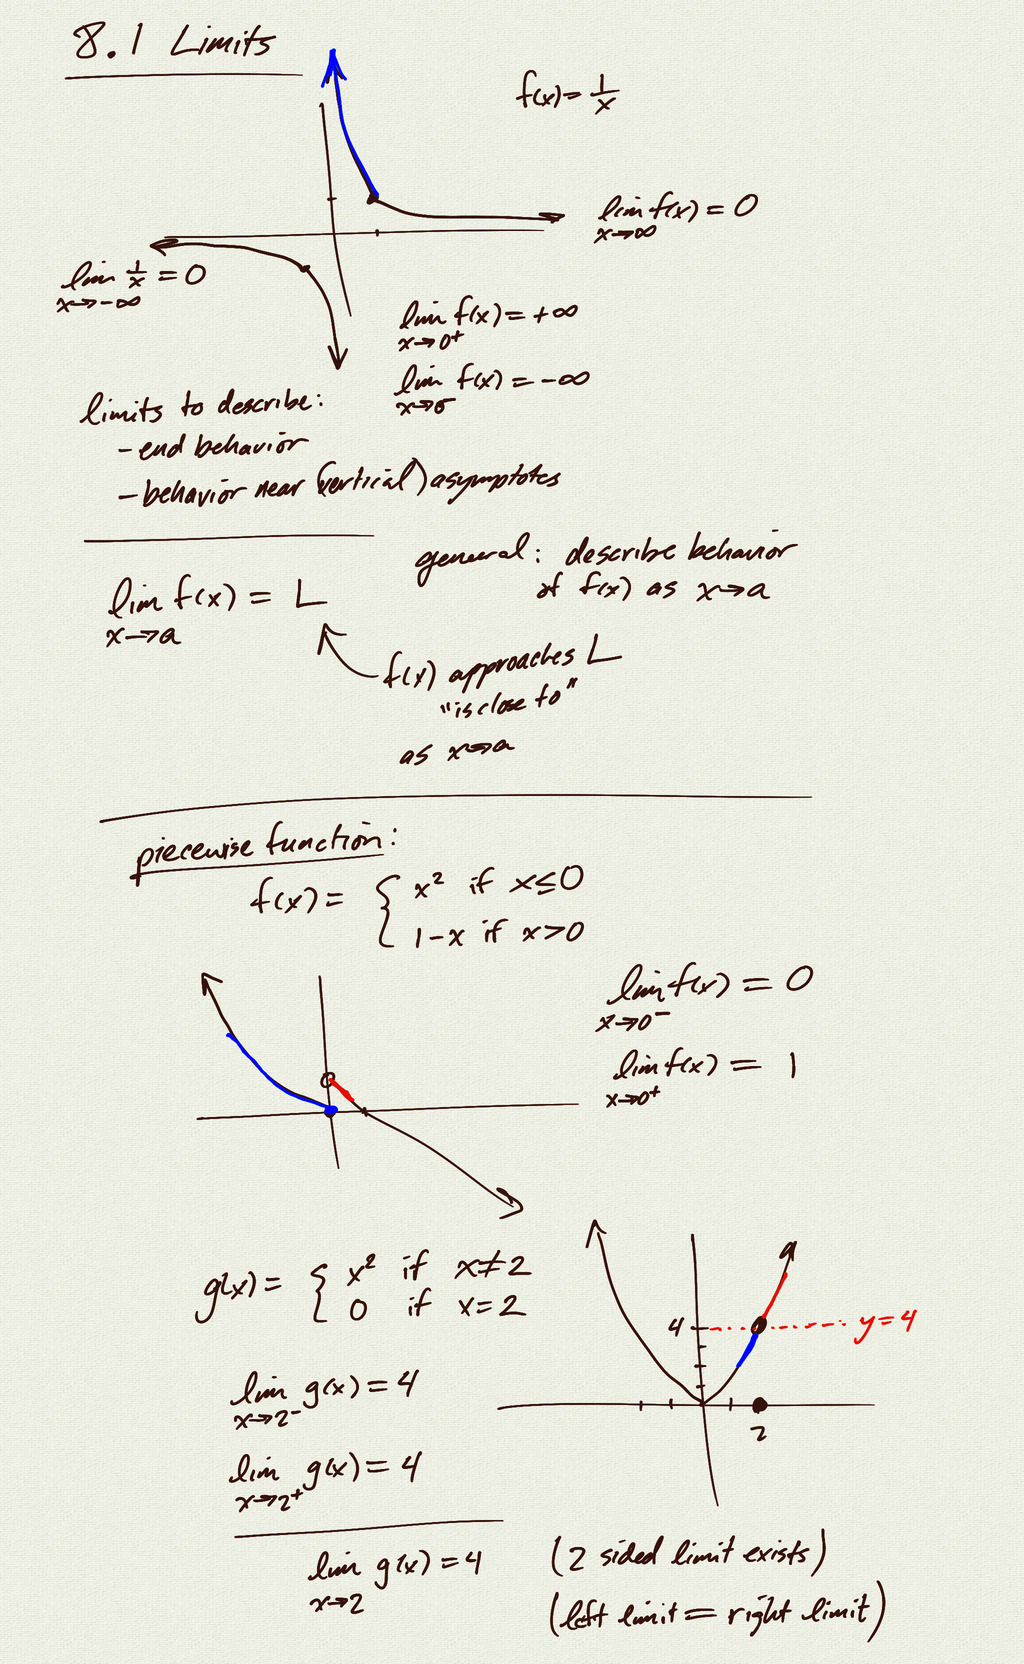 8.1 Limits
f(x) = 1/x
lim f(x) = 0
x→∞
lim 1/x = 0
x→-∞
lim f(x) = +∞
x→0⁺
lim f(x) = -∞
x→0⁻
limits to describe:
- end behavior
- behavior near (vertical) asymptotes
general: describe behavior
of f(x) as x→a
lim f(x) = L
x→a
f(x) approaches L
"is close to"
as x→a
piecewise function:
f(x) = { x² if x≤0
1-x if x>0
lim f(x) = 0
x→0⁻
lim f(x) = 1
x→0⁺
g(x) = { x² if x≠2
0 if x=2
4
y=4
2
lim g(x) = 4
x→2⁻
lim g(x) = 4
x→2⁺
lim g(x) = 4
x→2
(2 sided limit exists)
(left limit = right limit)